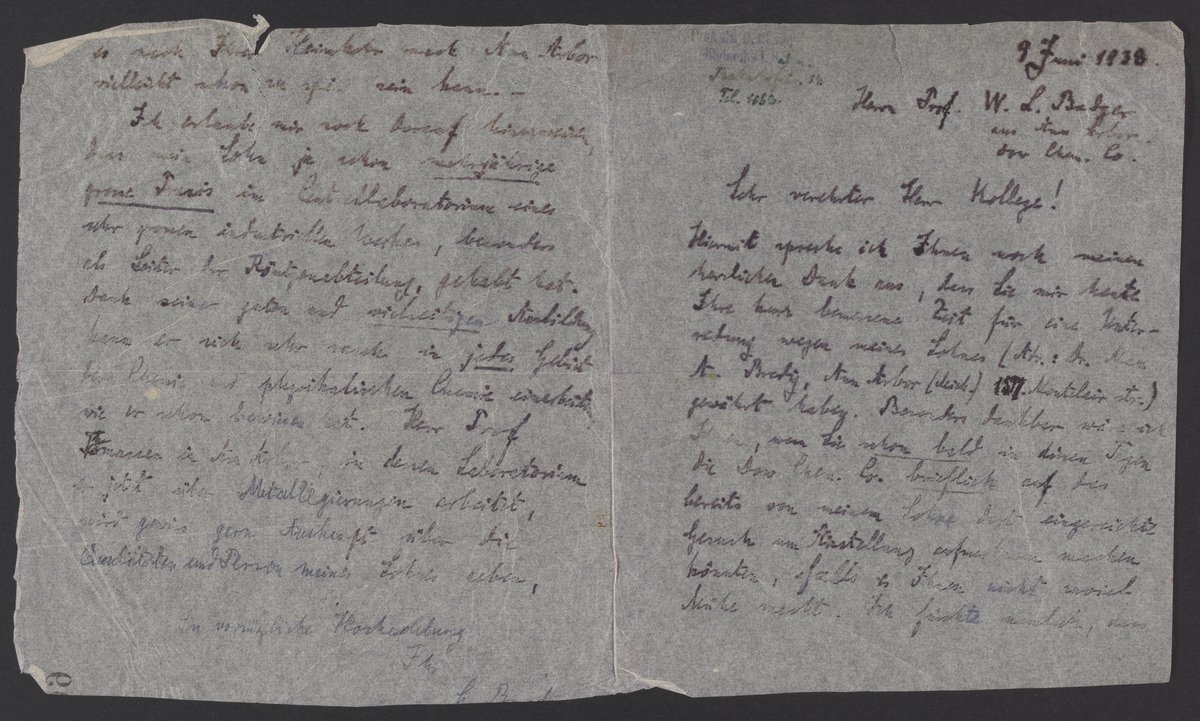 9 Juni 1938.
Herrn Prof. W. L. Badger
aus Ann Arbor
Dow Chem. Co.
Sehr verehrter Herr Kollege!
Hiermit spreche ich Ihnen noch meinen
herzlichen Dank aus, dass Sie mir heute
Ihre kurz bemessene Zeit für eine Unter-
redung wegen meines Sohnes (Adr.: Dr. Max
A. Bredig, Ann Arbor (Mich.) Montclair str.)
gewährt haben. Besonders dankbar wäre ich
Ihnen, wenn Sie schon bald in diesen Tagen
die Dow Chem. Co. brieflich auf das
bereits von meinem Sohne dort eingereichte
Gesuch um Anstellung aufmerksam machen
könnten, falls es Ihnen nicht zuviel
Mühe macht. Ich fürchte nämlich, dass
es nach Ihrer Heimkehr nach Ann Arbor
vielleicht schon zu spät sein kann. -
Ich erlaube mir noch darauf hinzuweisen,
dass mein Sohn ja schon mehrjährige
grosse Praxis im Centrallaboratorium eines
sehr grossen industriellen Werkes, besonders
als Leiter der Röntgenabteilung, gehabt hat.
Dank seiner guten und vielseitigen Ausbildung
kann er sich sehr rasch in jedes Gebiet
der Chemie und physikalischen Chemie einarbeiten,
wie er schon bewiesen hat. Herr Prof
in Ann Arbor, in dessen Laboratorium
er jetzt über Metallegierungen arbeitet,
wird gewiss gern Auskunft über die
Qualitäten und Person meines Sohnes geben,
In vorzüglicher Hochachtung
Ihr
G. Bredig